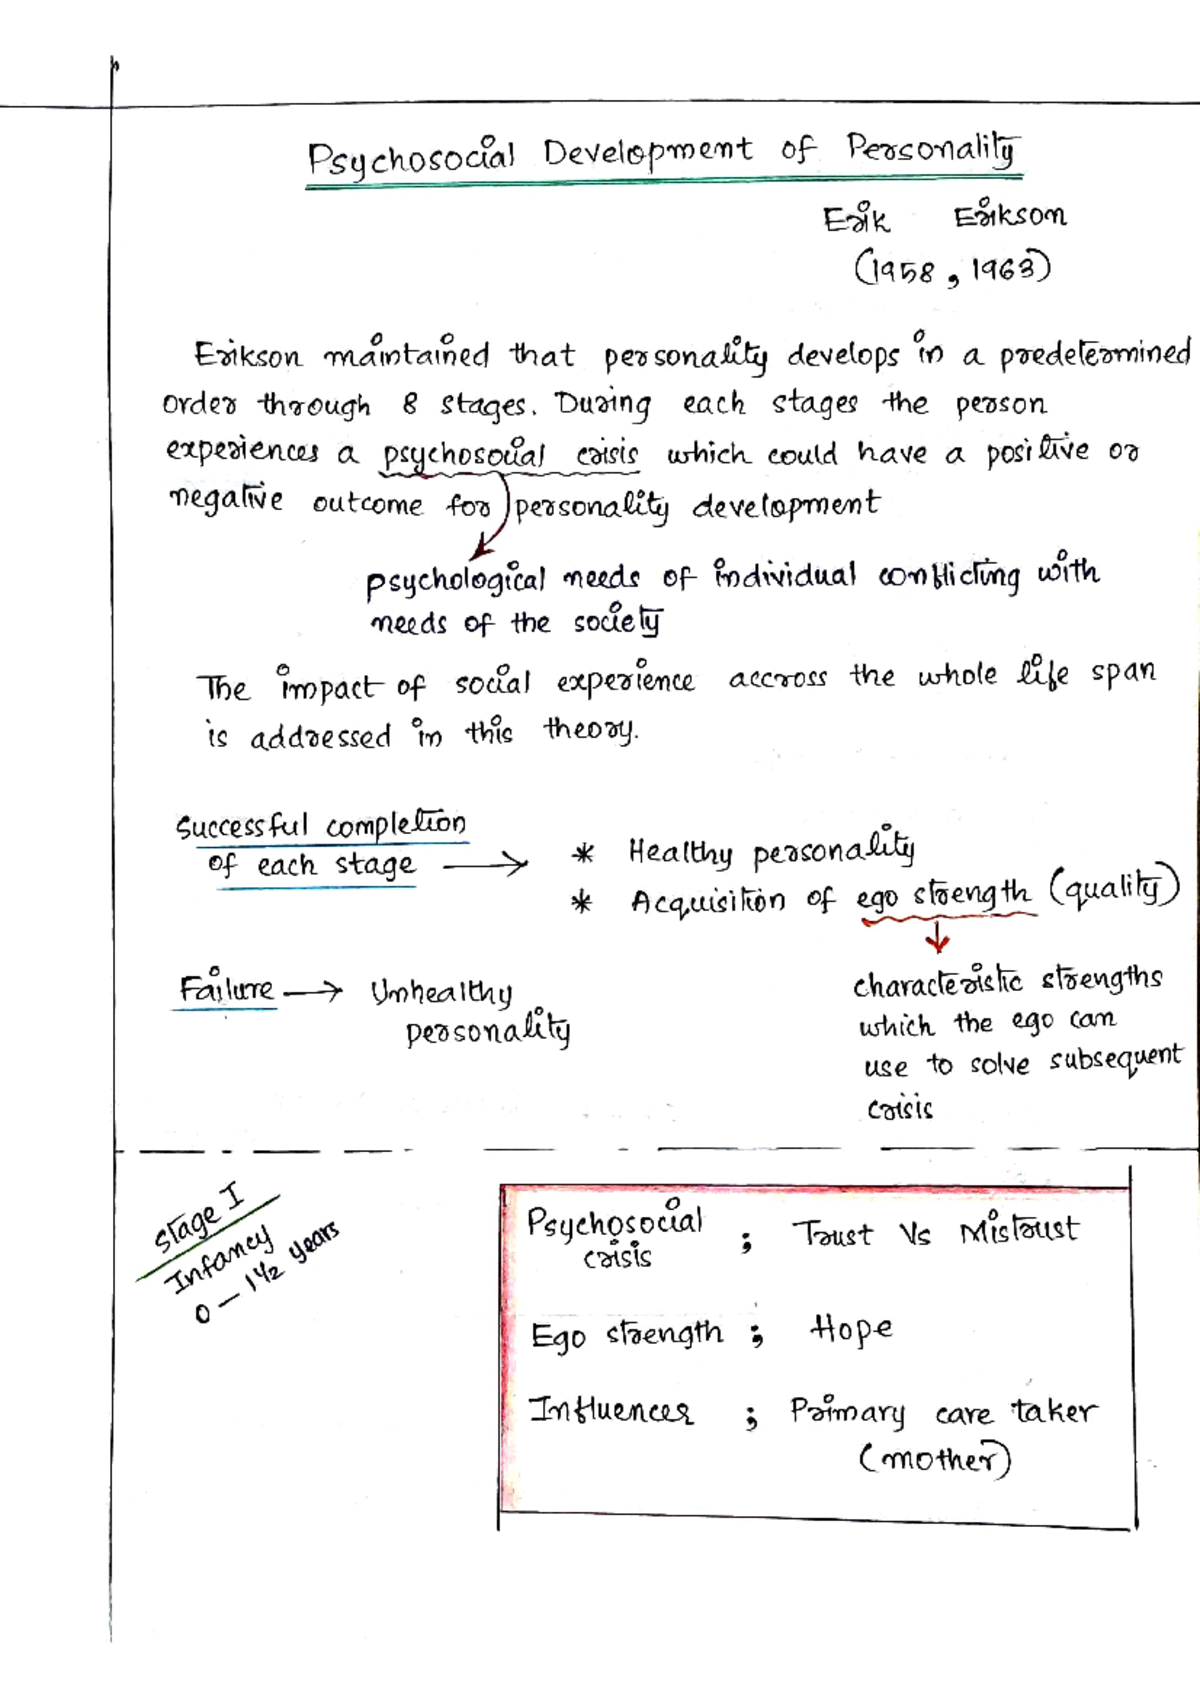 Psychosocial Development of Personality
Erik Erikson
(1958, 1963)
Erikson maintained that personality develops in a predetermined
order through 8 stages. During each stages the person
experiences a psychosocial crisis which could have a positive or
negative outcome for personality development
psychological needs of individual conflicting with
needs of the society
The impact of social experience accross the whole life span
is addressed in this theory.
Successful completion
of each stage → * Healthy personality
* Acquisition of ego strength (quality)
Failure → Unhealthy
personality
characteristic strengths
which the ego can
use to solve subsequent
crisis
Stage I
Infancy
0 – 1 1/2 years
Psychosocial
crisis ; Trust Vs Mistrust
Ego strength ; Hope
Influences ; Primary care taker
(mother)